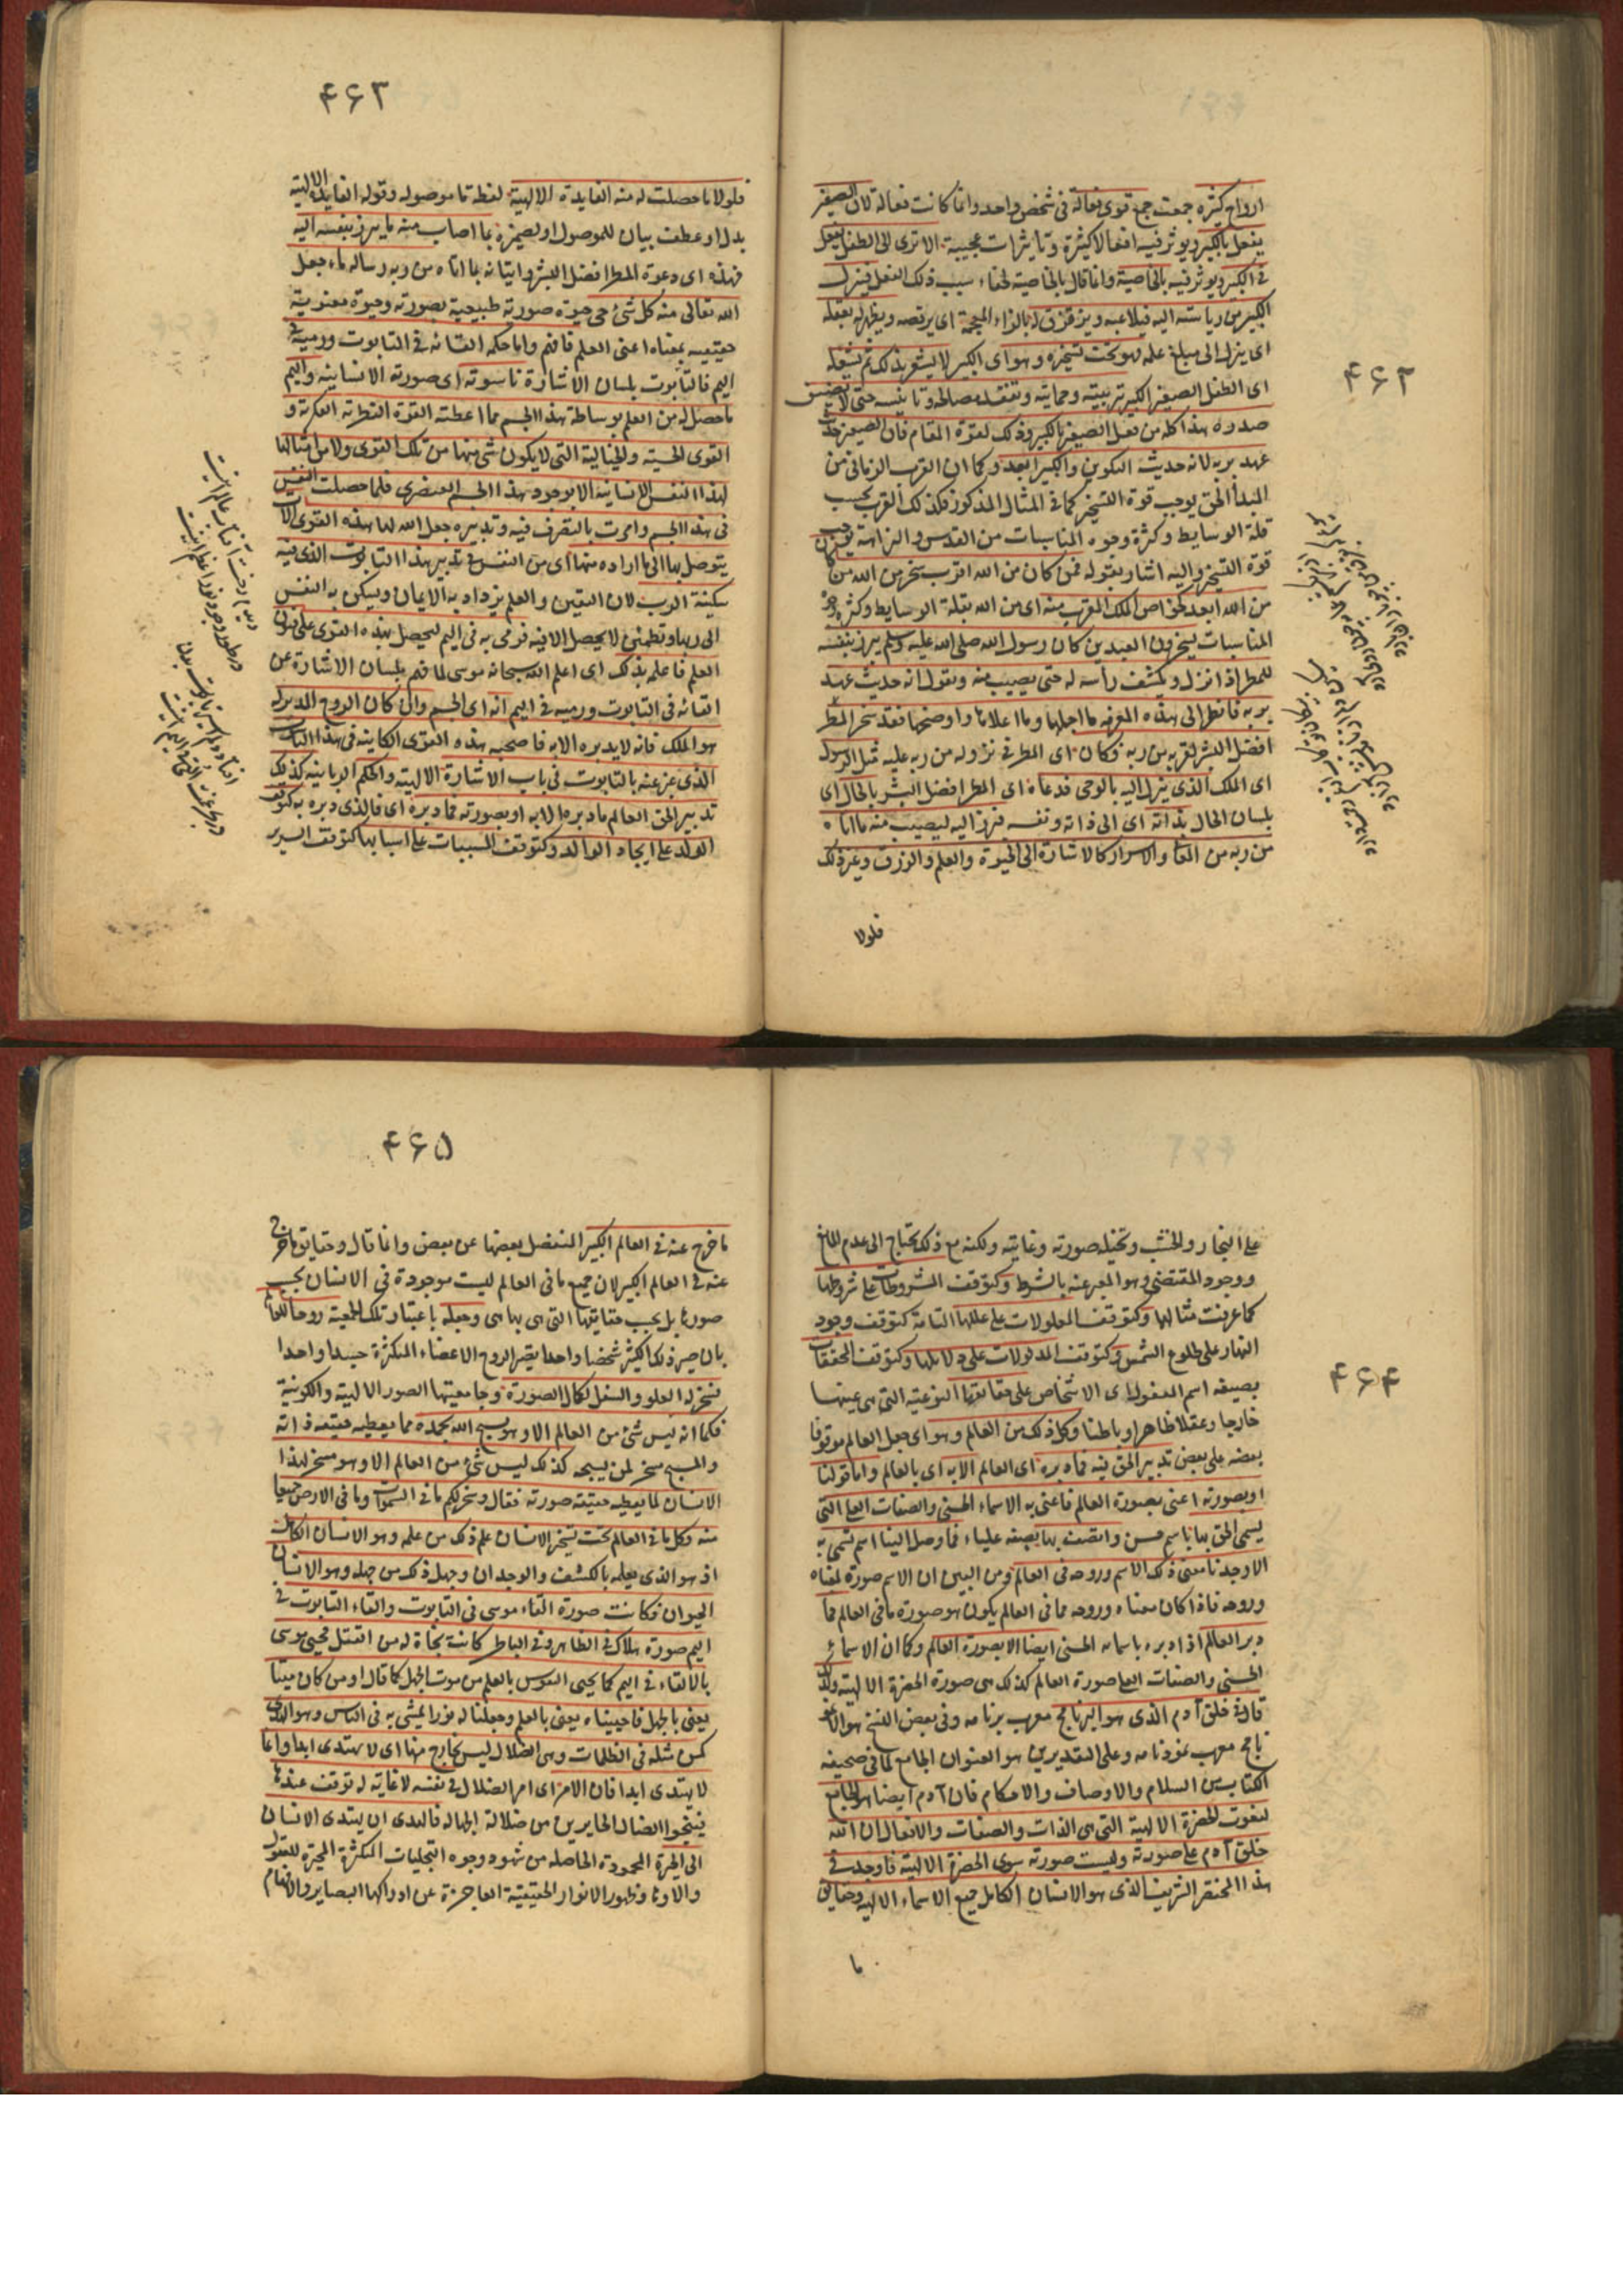 ۴۶۲
ارواح كثيرة جمعت جمع قوى فعالة فى شخص واحد وانما كانت فعالة لان الصغير
يفعل بالكبير ويوثر فيه افعالا كثيرة وتاثيرات عجيبة الا ترى الى الطفل يفعل
فى الكبير ويوثر فيه بالخاصية وانما قال بالخاصية لخفاء سبب ذلك الفعل فينزل
الكبير من رياسته اليه فيلاعبه ويزقزق له بالزاء المعجمة اى يرقصه ويظهر له بعقله
اى ينزل الى مبلغ عقله فهو تحت تسخيره وهو اى الكبير لا يشعر بذلك ثم يشغله
اى الطفل الصغير الكبير بتربيته وحمايته وتفقد مصالحه وتانيسه حتى لا يضيق
صدره هذا كله من فعل الصغير بالكبير وذلك لقوة المقام فان الصغير حديث
عهد بربه لانه حديث التكوين والكبير ابعد وكما ان القرب الزمانى من
المبدأ الحق يوجب قوة التسخير كما فى المثال المذكور فكذلك القرب بحسب
قلة الوسايط وكثرة وجوه المناسبات من القدس والنزاهة يوجب
قوة التسخير واليه اشار بقوله فمن كان من الله اقرب سخر من كان
من الله ابعد كخواص الملك للقرب منه اى من الله بقلة الوسايط وكثرة وجوه
المناسبات يسخرون الابعدين كان رسول الله صلى الله عليه وسلم يبرز بنفسه
للمطر اذا نزل ويكشف رأسه له حتى يصيب منه ويقول انه حديث عهد
بربه فانظر الى هذه المعرفة ما اجلها وما اعلاها واوضحها فقد سخر المطر
افضل البشر لقربه من ربه فكان اى المطر فى نزوله من ربه عليه مثل الرسول
اى الملك الذى ينزل اليه بالوحى فدعاه اى المطر افضل البشر بالحال اى
بلسان الحال بذاته اى الى ذاته ونفسه فبرز اليه ليصيب منه ما اتاه
من ربه من المعا والاسرار كالاشارة الى الحيوة والعلم والرزق وغير ذلك
فلولا
۴۶۳
فلولا ما حصلت له منه الفايدة الالهية لفظة ما موصولة وقوله الفايدة الالهية
بدل او عطف بيان للموصول او لضميره بما اصاب منه ما برز بنفسه اليه
فهذه اى دعوة المطر افضل البشر واتيانه بما اتاه من ربه رسالة ماء جعل
الله تعالى منه كل شئ حى حيوة صورية طبيعية بصورته وحيوة معنوية
حقيقية بمعناه اعنى العلم فافهم واما حكمة القائه فى التابوت ورميه فى
اليم فالتابوت بلسان الاشارة ناسوته اى صورته الانسانية واليم
ما حصل له من العلم بوساطة هذا الجسم مما اعطته القوة النظرية الفكرية و
القوى الحسية والخيالية التى لا يكون شئ منها من تلك القوى ولا من امثالها
لهذا النفس الانسانية الا بوجود هذا الجسم العنصرى فلما حصلت النفس
فى هذا الجسم وامرت بالتصرف فيه وتدبيره جعل الله لها هذه القوى الات
يتوصل بها الى ما اراده منها اى من النفس فى تدبير هذا التابوت الذى فيه
سكينة الرب لان اليقين والعلم يزداد به الايمان ويسكن به النفس
الى ربها وتطمئن لا يحصل الا فيه فرمى به فى اليم ليحصل بهذه القوى على فنون
العلم فاعلمه بذلك اى اعلم الله سبحانه موسى لما فهم بلسان الاشارة عن
القائه فى التابوت ورميه فى اليم انه اى الجسم وان كان الروح المدبر له
هو الملك فانه لا يدبره الا به فاصحبه هذه القوى الكاينة فى هذا الناسوت
الذى عبر عنه بالتابوت فى باب الاشارة الالهية والحكم الربانية كذلك
تدبير الحق العالم ما دبره الا به او بصورته فما دبره اى فالذى دبره به كتوقف
الولد على ايجاد الوالد وكتوقف المسببات على اسبابها كتوقف السرير
۴۶۴
على النجار والخشب وتخيل صورته وغايته ولكنه مع ذلك يحتاج الى عدم المانع
ووجود المقتضى وهو المعبر عنه بالشرط وكتوقف المشروطات على شروطها
كما عرفت مثالها وكتوقف المعلولات على عللها التامة كتوقف وجود
النهار على طلوع الشمس وكتوقف المدلولات على دلايلها وكتوقف المحققات
بصيغة اسم المفعول اى الاشخاص على حقايقها النوعية التى هى عينها
خارجا وعقلا ظاهرا وباطنا وكل ذلك من العالم وهو اى جعل العالم موقوفا
بعضه على بعض تدبير الحق فيه فما دبره اى العالم الا به اى بالعالم واما قولنا
او بصورته اعنى بصورة العالم فاعنى به الاسماء الحسنى والصفات العلى التى
يسمى الحق بها باسم حسن واتصف بها بصفة علياء فما وصل الينا اسم تسمى به
الا وجدنا معنى ذلك الاسم وروحه فى العالم ومن البين ان الاسم صورة لمعناه
وروحه فاذا كان معناه وروحه مما فى العالم يكون هو صورة ما فى العالم فما
دبر العالم اذا دبره باسمائه الحسنى ايضا الا بصورة العالم وكما ان الاسماء
الحسنى والصفات العلى صورة العالم كذلك هى صورة الحضرة الالهية ولذلك
قال فى خلق آدم الذى هو البرنامج معرب برنامه وفى بعض النسخ هو الانمو
ذج معرب نمودنامه وعلى التقديرين هو العنوان الجامع لما فى صحيفة
الكتاب من السلام والاوصاف والاحكام فان آدم ايضا هو الجامع
لنعوت الحضرة الالهية التى هى الذات والصفات والافعال ان الله
خلق آدم على صورته وليست صورته سوى الحضرة الالهية فاوجد فى
هذا المختصر الشريف الذى هو الانسان الكامل جميع الاسماء الالهية وحقايق
ما
۴۶۵
ما خرج عنه فى العالم الكبير المنفصل بعضها عن بعض وانما قال وحقايق ما خرج
عنه فى العالم الكبير لان جميع ما فى العالم ليست موجودة فى الانسان بحسب
صورها بل بحسب حقايقها التى هى بها هى وجعله باعتبار تلك الجمعية روحا للعالم
بان صير ذلك الكثير شخصا واحدا يصير الروح الاعضاء المتكثرة جسدا واحدا
فسخر له العلو والسفل لكمال الصورة وجامعيتها الصور الالهية والكونية
فكما انه ليس شئ من العالم الا وهو يسبح الله بحمده مما يعطيه حقيقة ذاته
والمسبح مسخر لمن يسبحه كذلك ليس شئ من العالم الا وهو مسخر لهذا
الانسان لما يعطيه حقيقة صورته فقال وسخر لكم ما فى السموات وما فى الارض جميعا
منه وكل ما فى العالم تحت تسخير الانسان علم ذلك من علمه وهو الانسان الكامل
اذ هو الذى يعلمه بالكشف والوجدان وجهل ذلك من جهله وهو الانسان
الحيوان فكانت صورة القاء موسى فى التابوت والقاء التابوت فى
اليم صورة هلاك فى الظاهر وفى الباطن كانت نجاة له من القتل فحيى موسى
بالالقاء فى اليم كما يحيى النفوس بالعلم من موت الجهل كما قال او من كان ميتا
يعنى بالجهل فاحييناه يعنى بالعلم وجعلنا له نورا يمشى به فى الناس وهو الهدى
كمن مثله فى الظلمات وهى الضلال ليس بخارج منها اى لا يهتدى ابدا وانما
لا يهتدى ابدا فان الامر اى امر الضلال فى نفسه لا غاية له توقف عندها
فينجوا الضال الحايرين من ضلالة الجهالة فالهدى ان يهتدى الانسان
الى الحيرة المحمودة الحاصلة من شهود وجوه التجليات المتكثرة المحيرة للعقول
والاوهام وظهور الانوار الحقيقية العاجزة عن ادراكها البصاير والافهام